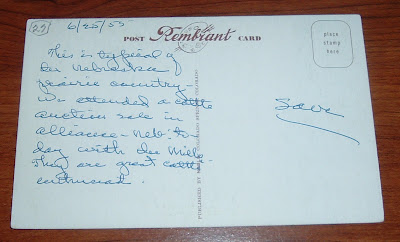 (22)
6/25/55
POST Rembrant CARD
place
stamp
here
This is typical of
the Nebraska
prairie country
We attended a cattle
auction sale in
alliance - Neb. to-
day with the
They are great cattle
Save
PUBLISHED BY COLORADO